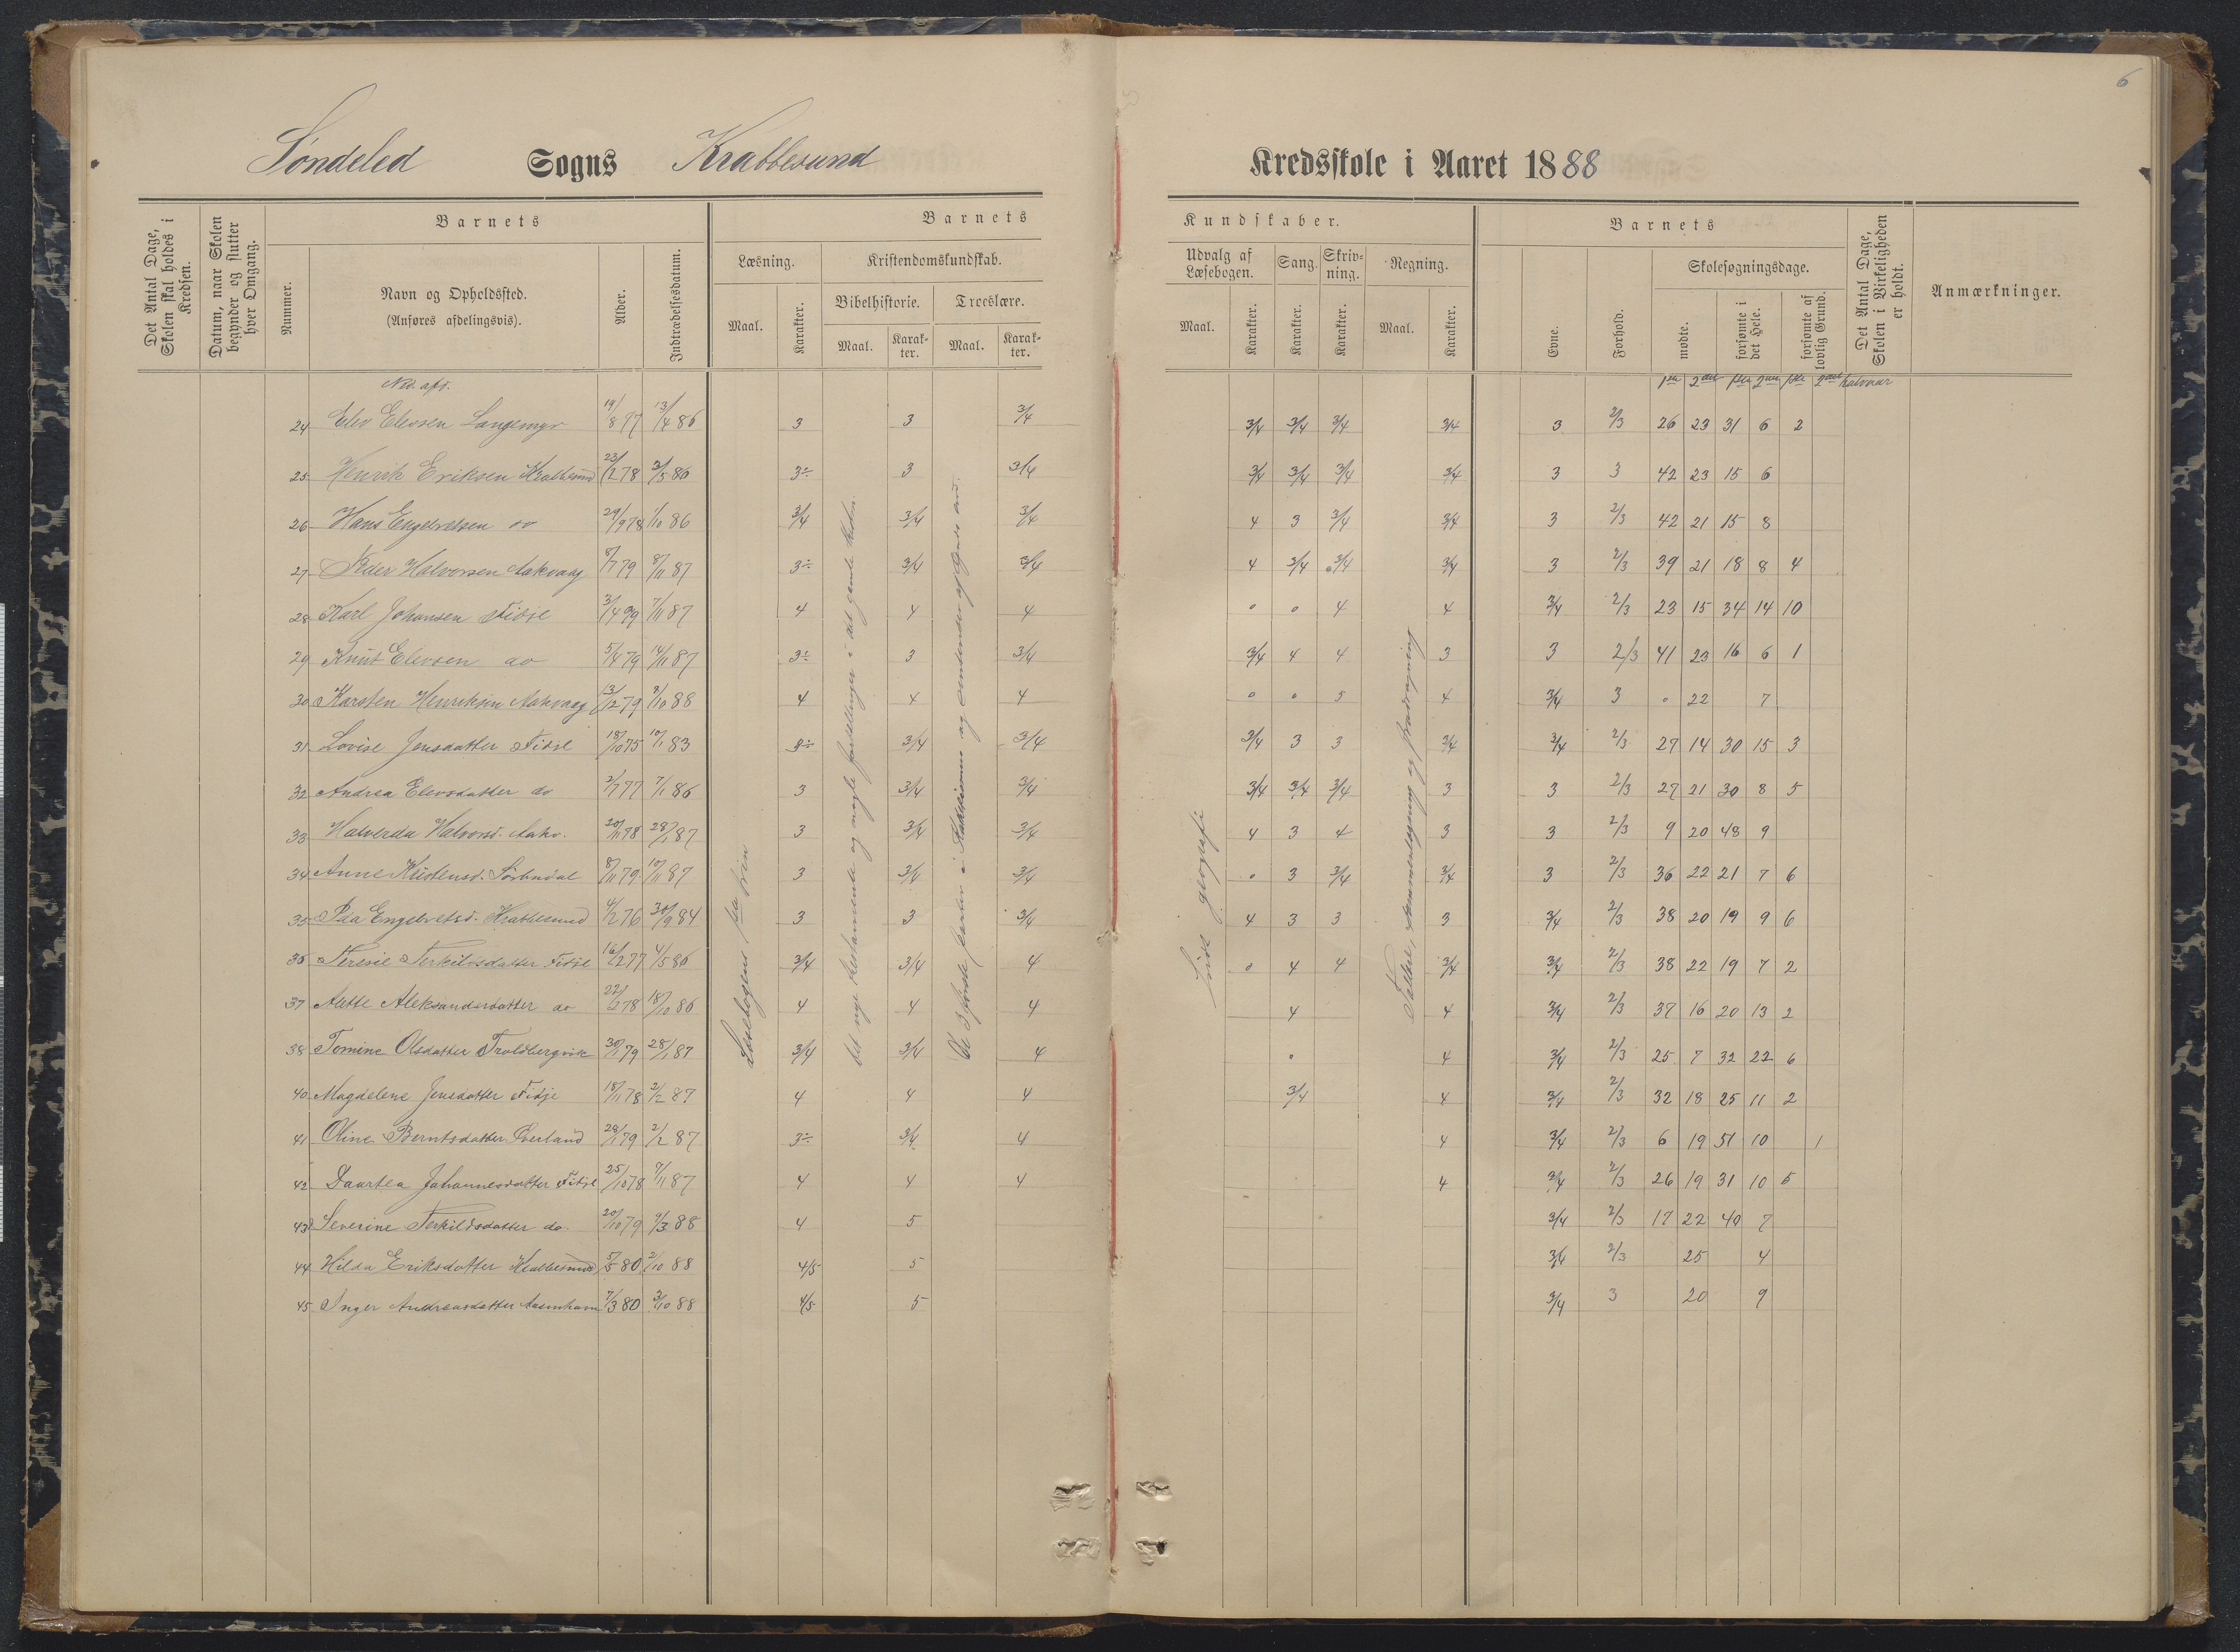 6
Søndeled Sogns Krabbesund Kredsskole i Aaret 1888
Det Antal Dage, Skolen skal holdes i Kredsen.
Datum, naar Skolen begynder og slutter hver Omgang.
Barnets
Nummer.
Navn og Opholdssted.
(Anføres afdelingsvis).
Alder.
Indtrædelsesdatum.
Barnets
Læsning.
Maal.
Karakter.
Kristendomskundskab.
Bibelhistorie.
Maal.
Karakter.
Troeslære.
Maal.
Karakter.
Kundskaber.
Udvalg af Læsebogen.
Maal.
Karakter.
Sang.
Karakter.
Skrivning.
Karakter.
Regning.
Maal.
Karakter.
Barnets
Evne.
Forhold.
Skolesøgningsdage.
mødte.
forsømte i det Hele.
forsømte af lovlig Grund.
Det Antal Dage, Skolen i Virkeligheden er holdt.
Anmærkninger.
Ned. afd. 1ste 2det 1ste 2det 1ste 2det halvaar
24 Elev Elevsen Langemyr 19/8 77 13/4 86 3 3 3/4 3/4 3/4 3/4 3/4 3 2/3 26 23 31 6 2
25 Henrik Eriksen Krabbesund 23/2 78 3/5 86 3÷ 3 3/4 3/4 3/4 3/4 3/4 3 3 42 23 15 6
26 Hans Engebretsen do 29/9 78 1/10 86 3/4 3/4 3/4 4 3 3/4 3/4 3 2/3 42 21 15 8
27 Peder Halvorsen Aakvaag 8/7 79 8/11 87 3÷ 3/4 3/4 4 3/4 3/4 3/4 3 2/3 39 21 18 8 4
28 Karl Johansen Fidje 3/4 79 7/11 87 4 4 4 0 0 4 4 3/4 2/3 23 15 34 14 10
29 Knut Elevsen do 5/4 79 14/11 87 3÷ 3 3/4 3/4 4 4 3 3 2/3 41 23 16 6 1
30 Karsten Henriksen Aakvaag 13/12 79 3/10 88 4 4 4 0 0 5 4 3/4 3 0 22 7
31 Lovise Jensdatter Fidje 18/10 75 10/1 83 3÷ 3/4 3/4 3/4 3 3 3/4 3/4 2/3 27 14 30 15 3
32 Andrea Elevsdatter do 2/7 77 7/1 86 3 3/4 3/4 3/4 3/4 3/4 3 3 2/3 27 21 30 8 5
33 Halverda Halvorsd. Aakv. 20/11 78 28/1 87 3 3/4 3/4 4 3 4 3 3 2/3 9 20 48 9
34 Anne Kristensd. Sørbndal 8/11 79 10/11 87 3 3/4 3/4 0 3 3/4 3/4 3 2/3 36 22 21 7 6
35 Pia Engebretsd. Krabbesund 4/2 76 30/9 84 3 3 3/4 4 3 3 3 3/4 2/3 38 20 19 9 6
36 Teresie Terkildsdatter Fidje 16/2 77 4/5 86 3/4 3/4 4 0 4 4 3/4 3/4 2/3 38 22 19 7 2
37 Aette Aleksandersdatter do 22/2 78 18/10 86 4 4 4 4 4 3/4 2/3 37 16 20 13 2
38 Tomine Olsdatter Troldbergvik 30/1 79 28/1 87 3/4 3/4 4 0 4 3/4 2/3 25 7 32 22 6
40 Magdelene Jensdatter Fidje 18/11 78 2/2 87 4 4 4 3/4 4 3/4 2/3 32 18 25 11 2
41 Oline Berntsdatter Øverland 28/1 79 2/2 87 3÷ 3/4 4 4 3/4 2/3 6 19 51 10 1
42 Daartea Johannesdatter Fidje 25/10 78 7/11 87 4 4 4 4 3/4 2/3 26 19 31 10 5
43 Severine Terkildsdatter do. 20/10 79 9/3 88 4 5 3/4 2/3 17 22 40 7
44 Hilda Eriksdatter Krabbesund 5/5 80 2/10 88 4/5 5 3/4 2/3 25 4
45 Inger Andreasdatter 7/3 80 3/10 88 4/5 5 3/4 3 20 9
Læsebogens
Det nye testamente og nogle fortellinger i det gamle testm.
De 3 første parter i
Lidt geografi
Tallære, sammenlægning og fradragning